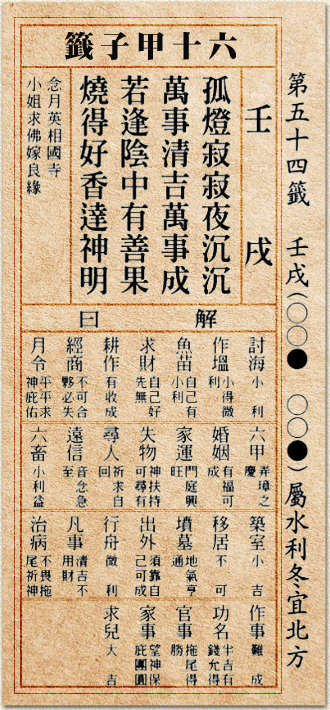 第五十四籤 壬戌(○○● ○○●)屬水利冬宜北方
六十甲子籤
壬戌
孤燈寂寂夜沉沉
萬事清吉萬事成
若逢陰中有善果
燒得好香達神明
念月英相國寺
小姐求佛嫁良緣
解曰
討海 小利
作塭 小得微利
魚苗 自己有小利
求財 自己好先無
耕作 有收成
經商 不可合夥必失
月令 平平求神庇佑
六甲 弄璋之慶
婚姻 有福可成
家運 門庭興旺
失物 神扶持可尋有
尋人 祈求自回
遠信 音念急至
六畜 小利益
築室 小吉
移居 不可
墳墓 地氣亨通
出外 須靠自己可成
行舟 微利
凡事 清吉不用財
治病 不畏拖尾祈神
作事 難成
功名 半吉有錢允得
官事 拖尾得勝
家事 望神保庇團圓
求兒 大吉